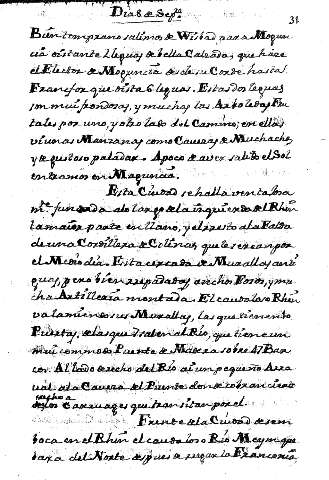 Dia 8 de Sepre
31
Bien temprano salimos de Wisbad para Mogun-
cia distante 2 leguas de bella Calzada, que haze
el Elector de Moguncia desde su Corte hasta
Francfor que dista 6 leguas. Estas dos leguas
son mui frondosas, y muchas las Arboledas Fru-
tales por uno, y otro lado del Camino; en ellas
vi unas Manzanas como Cavezas de Muchacho,
y de gustoso paladar. A poco de aver salido el Sol
entramos en Moguncia.
Esta Ciudad se halla ventajosa
mte. fundada a lo largo de la izquierda del Rhin
la maior parte en llano, y el resto a la Falda
de una Cordillera de Colinas, que la cercan por
el Medio dia. Esta cercada de Murallas anti
guas, pero bien reparadas, ancho Foso, y mu
cha Artilleria montada. El caudaloso Rhin
vala miendo sus Murallas, las que tienen to
Puertas, de las que salen al Rio, que tiene un
mui commodo Puente de Madera sobre 47 Bar
cos. Al lado derecho del Rio ai un pequeño Arra
val a la Caveza del Puente donde cobran cierto
de los Carruages que transitan por el.
Frente de la Ciudad desem
boca en el Rhin el caudaloso Rio Meyn que
baxa del Norte despues de regar la Franconia